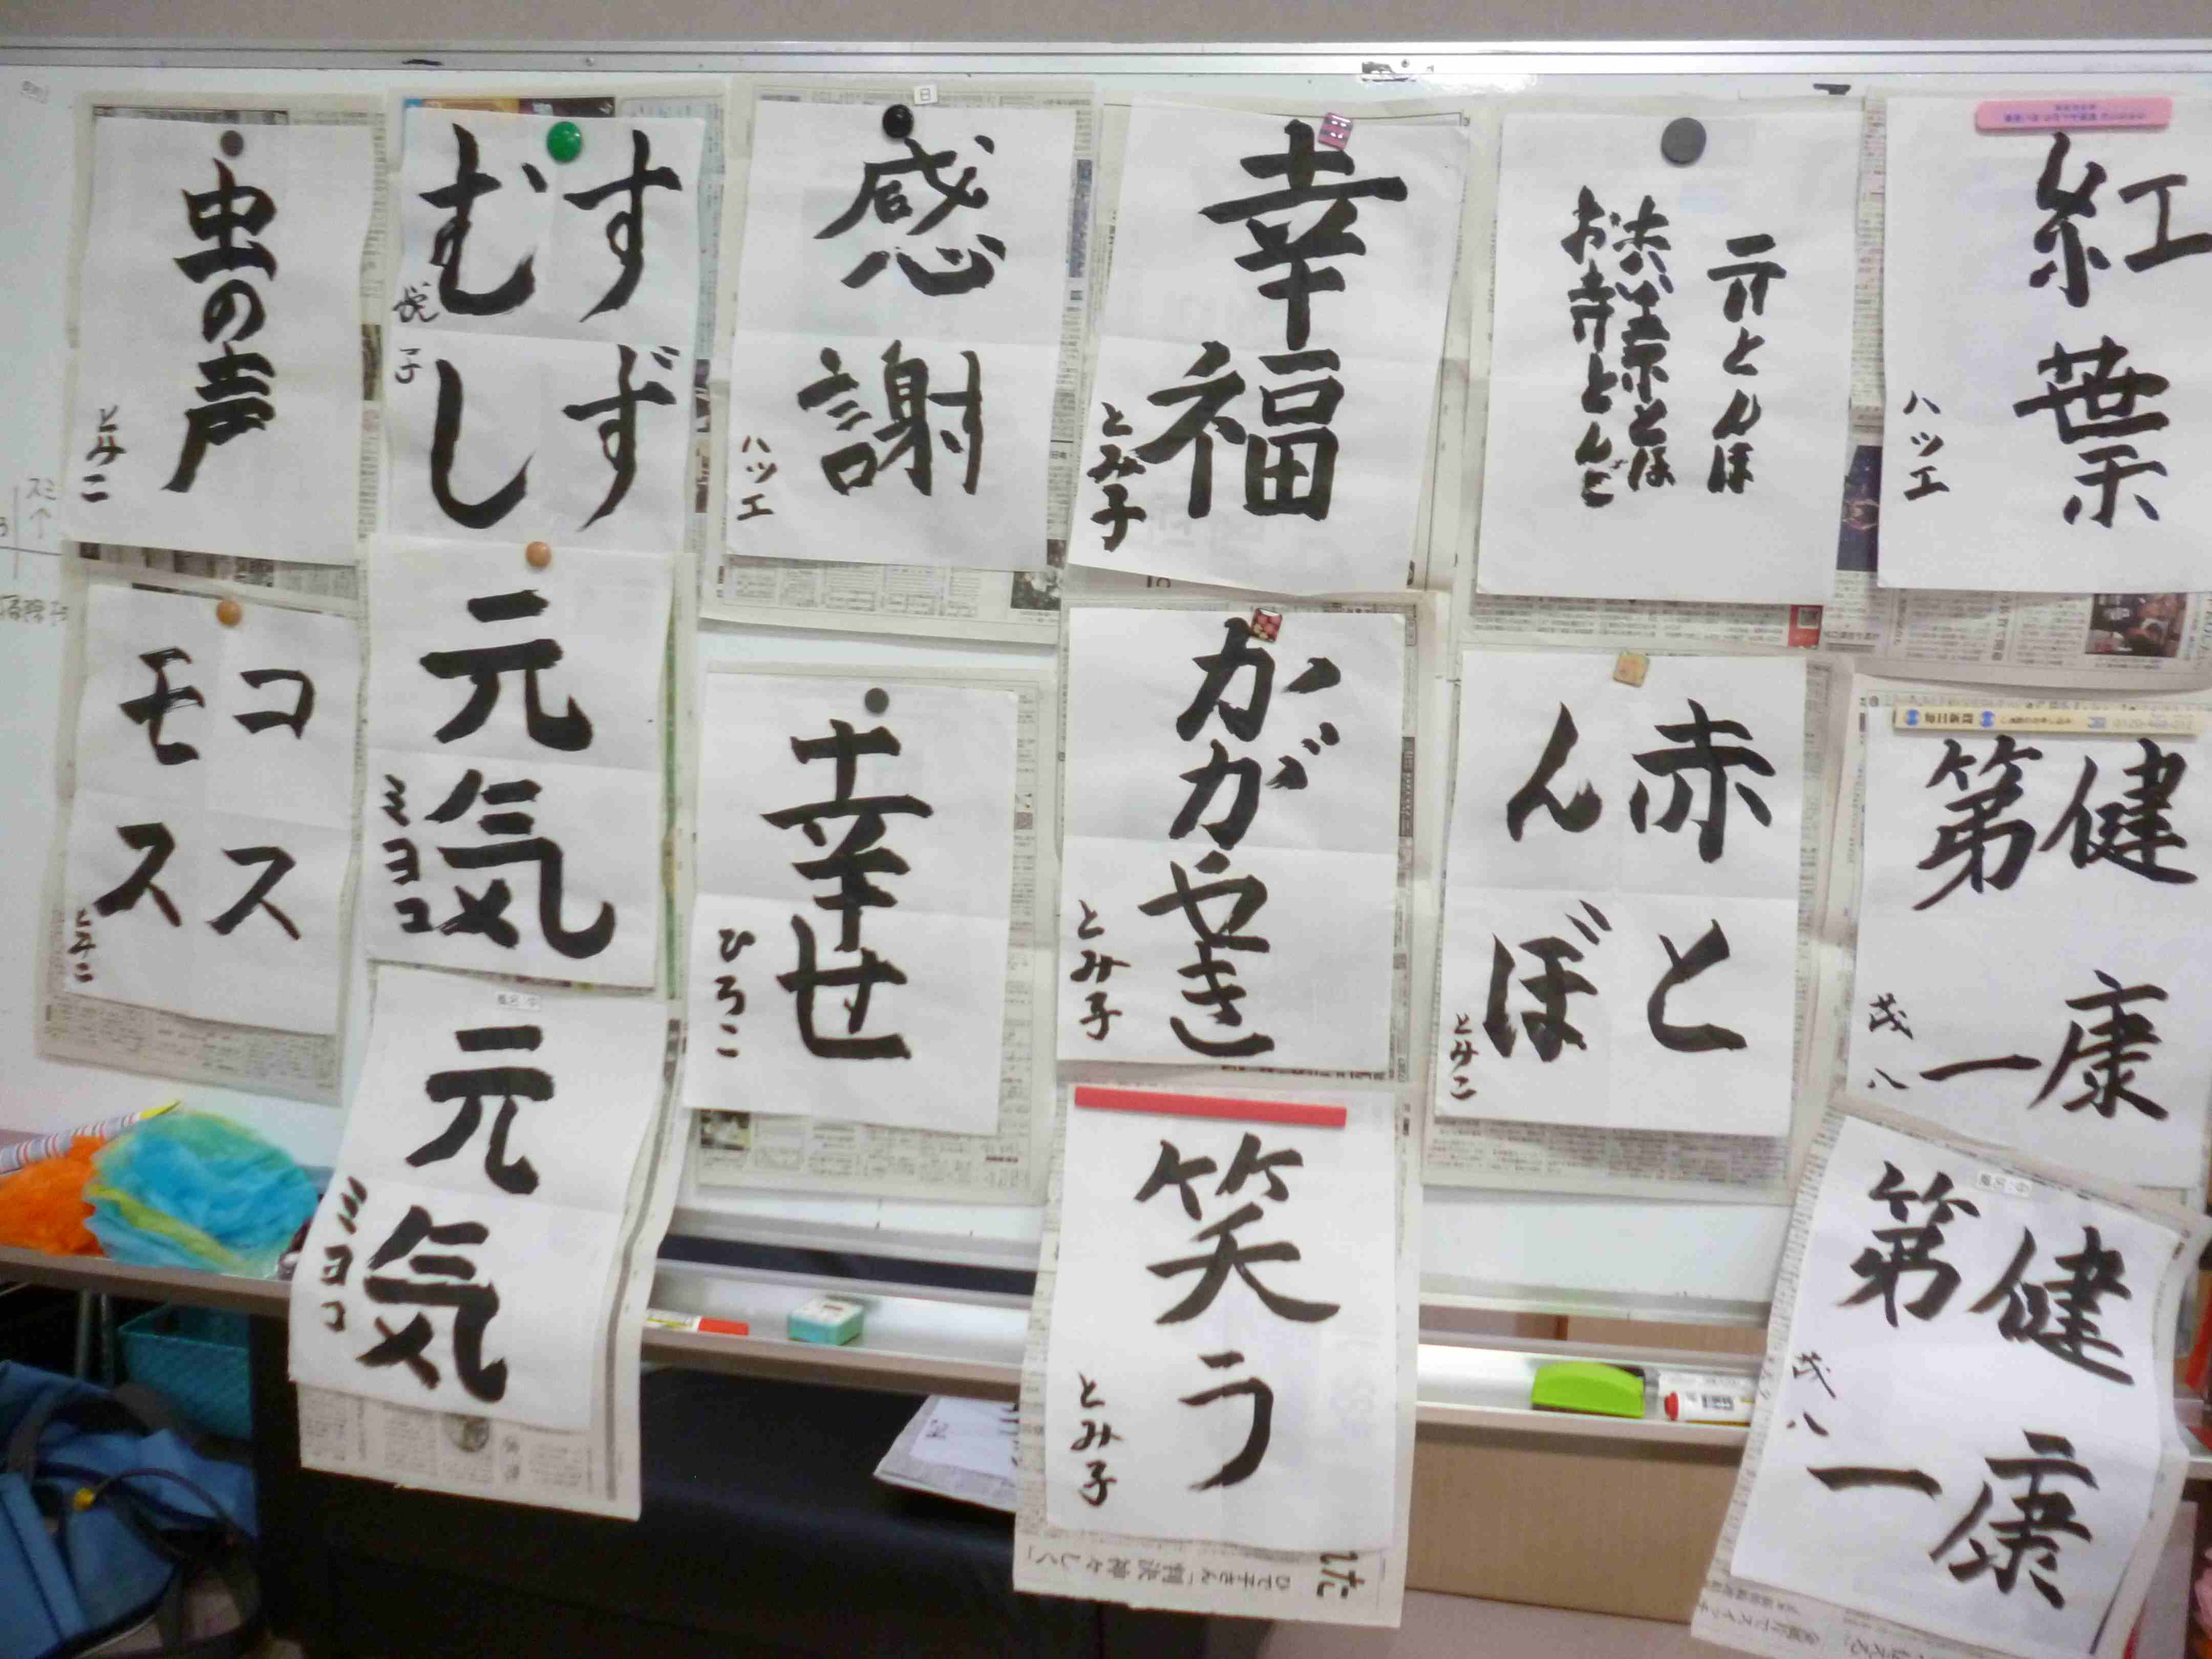 紅葉
ハツエ
とんぼ
お寺とんど
幸福
とみ子
感謝
ハツエ
すず
むし
悦子
虫の声
とみこ
健康
第一
茂八
毎日新聞
赤と
んぼ
とみこ
かがやき
とみ子
幸せ
ひろこ
元気
ミヨコ
コス
モス
とみこ
健康
第一
茂八
笑う
とみ子
元気
ミヨコ